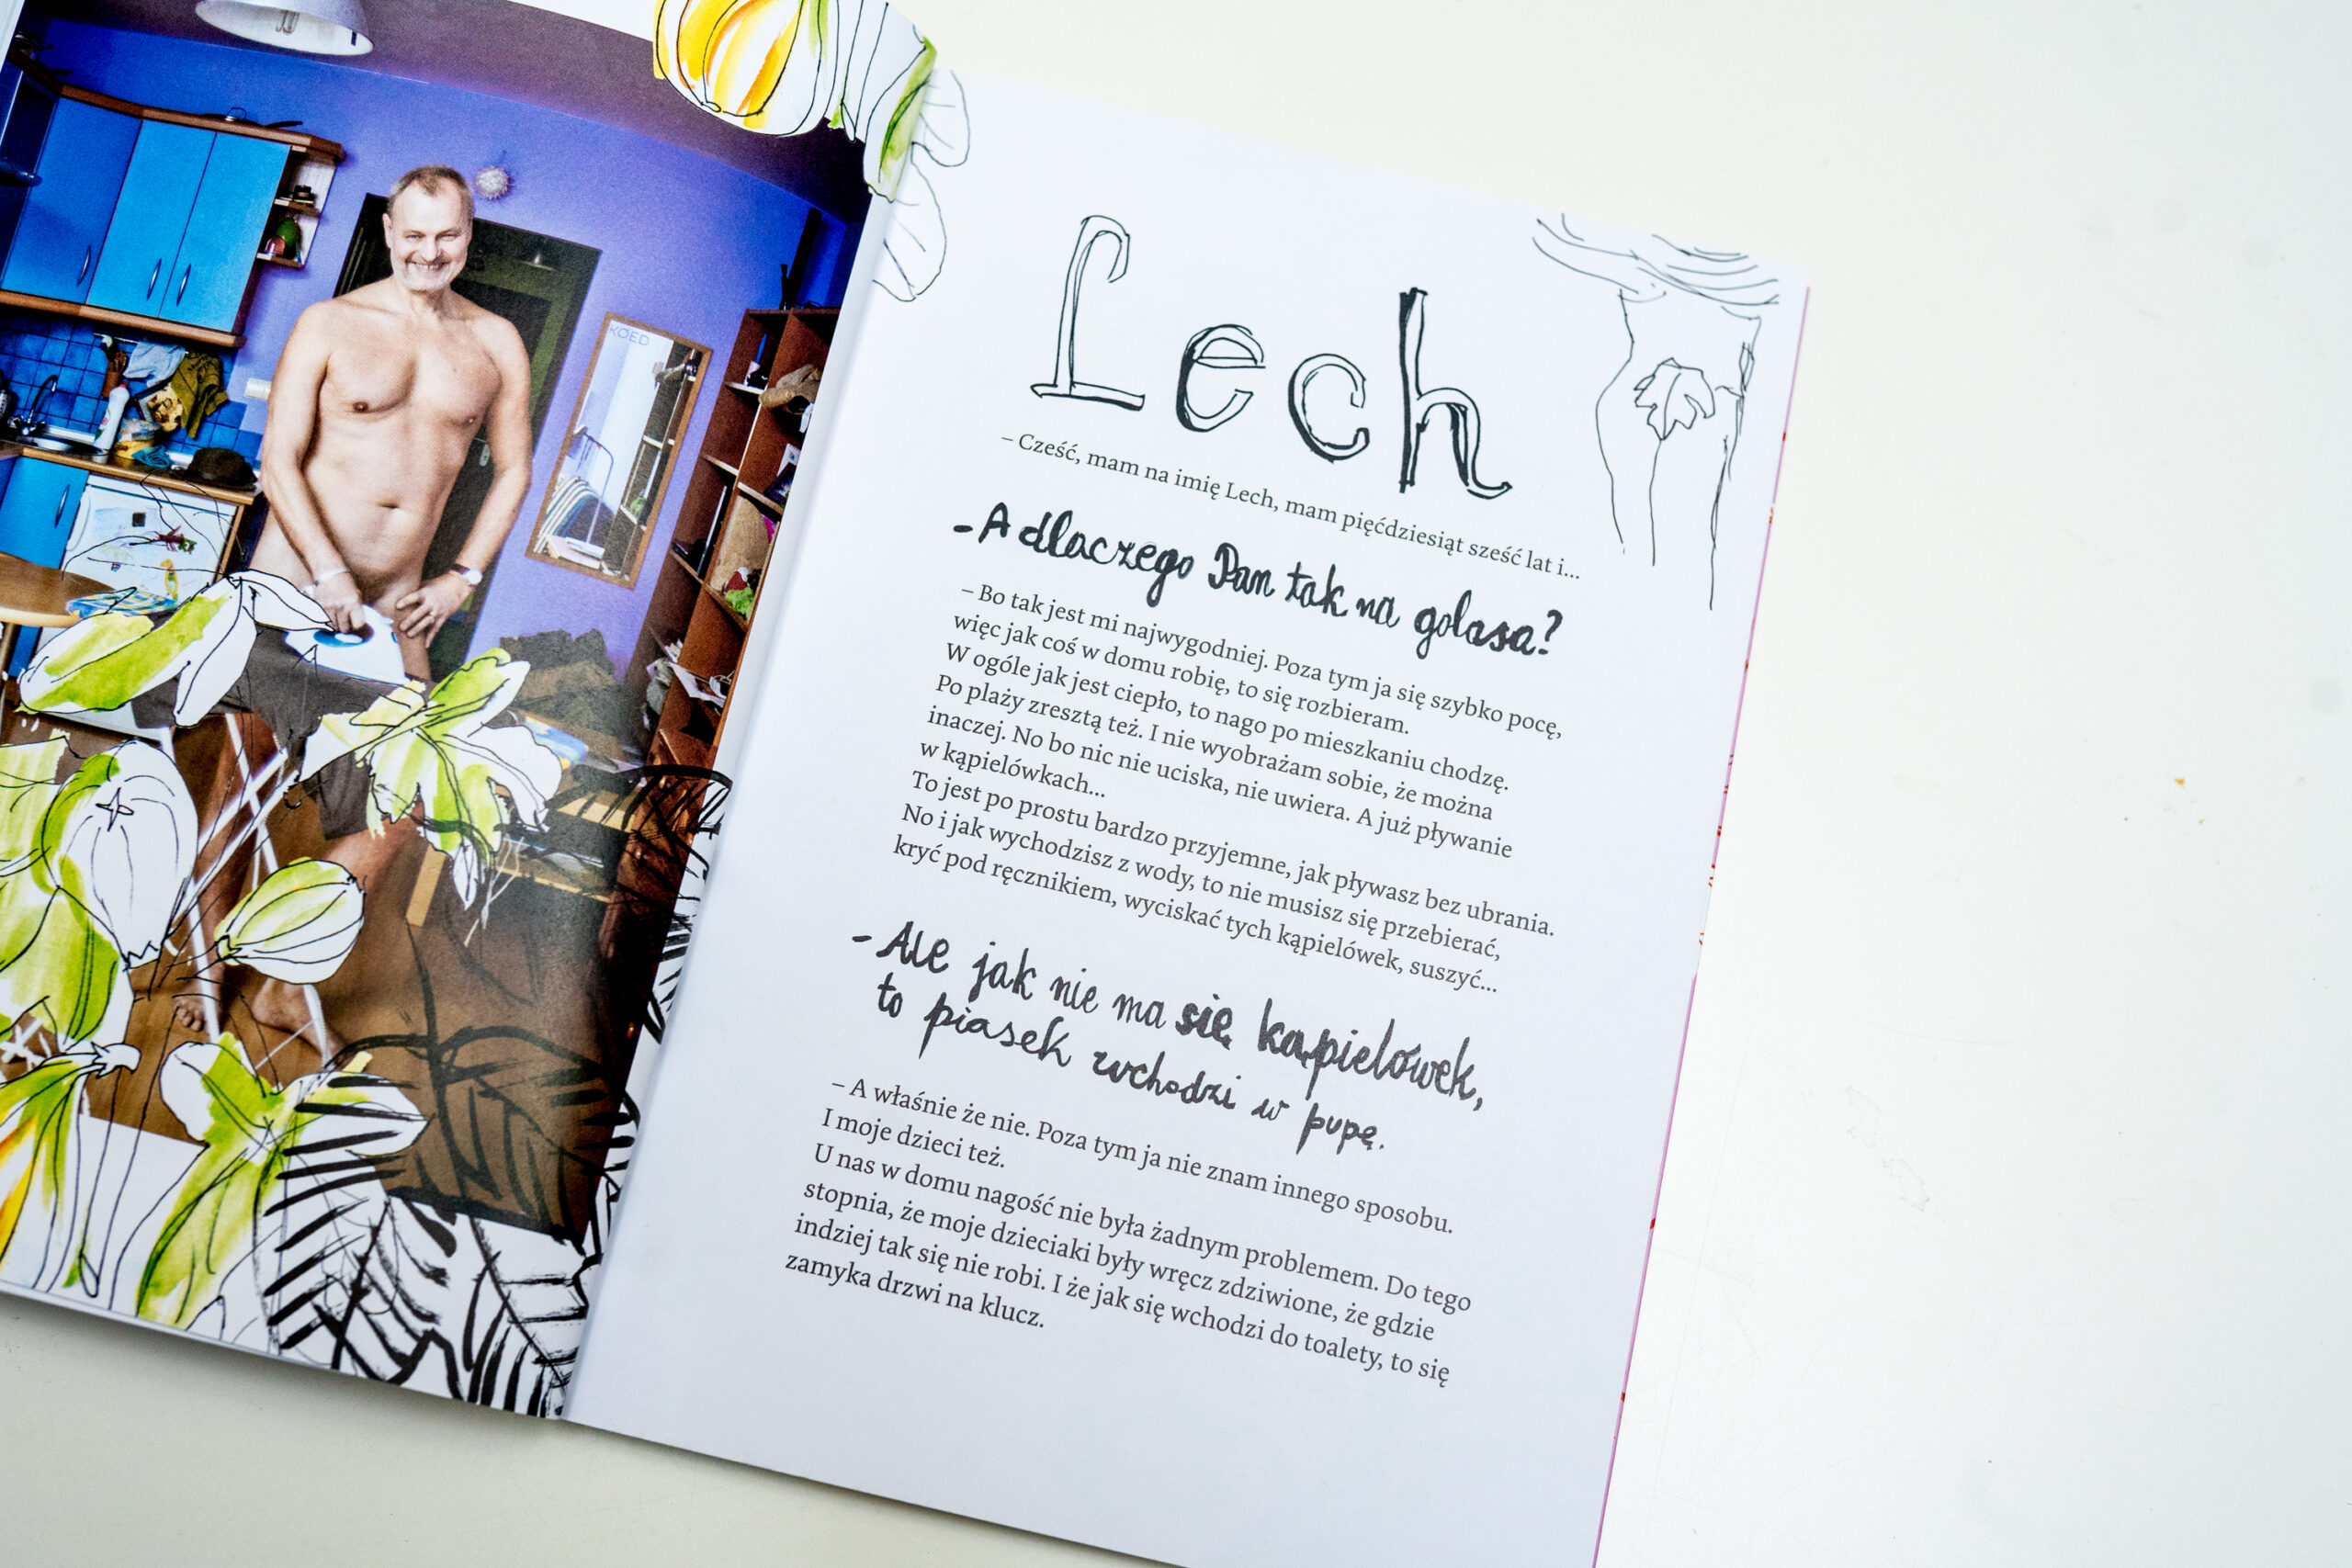 KOED
Lech
– Cześć, mam na imię Lech, mam pięćdziesiąt sześć lat i...
- A dlaczego Pan tak na golasa?
– Bo tak jest mi najwygodniej. Poza tym ja się szybko pocę,
więc jak coś w domu robię, to się rozbieram.
W ogóle jak jest ciepło, to nago po mieszkaniu chodzę.
Po plaży zresztą też. I nie wyobrażam sobie, że można
inaczej. No bo nic nie uciska, nie uwiera. A już pływanie
w kąpielówkach...
To jest po prostu bardzo przyjemne, jak pływasz bez ubrania.
No i jak wychodzisz z wody, to nie musisz się przebierać,
kryć pod ręcznikiem, wyciskać tych kąpielówek, suszyć...
- Ale jak nie ma się kąpielówek,
to piasek wchodzi w pupę.
– A właśnie że nie. Poza tym ja nie znam innego sposobu.
I moje dzieci też.
U nas w domu nagość nie była żadnym problemem. Do tego
stopnia, że moje dzieciaki były wręcz zdziwione, że gdzie
indziej tak się nie robi. I że jak się wchodzi do toalety, to się
zamyka drzwi na klucz.